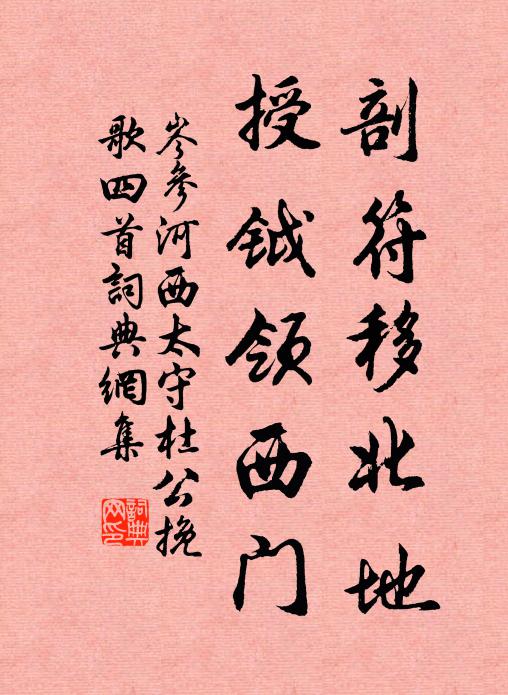 剖符移北地
授钺领西门
岑參河西太守杜公挽
歌四首詞典網集
詞典
网印